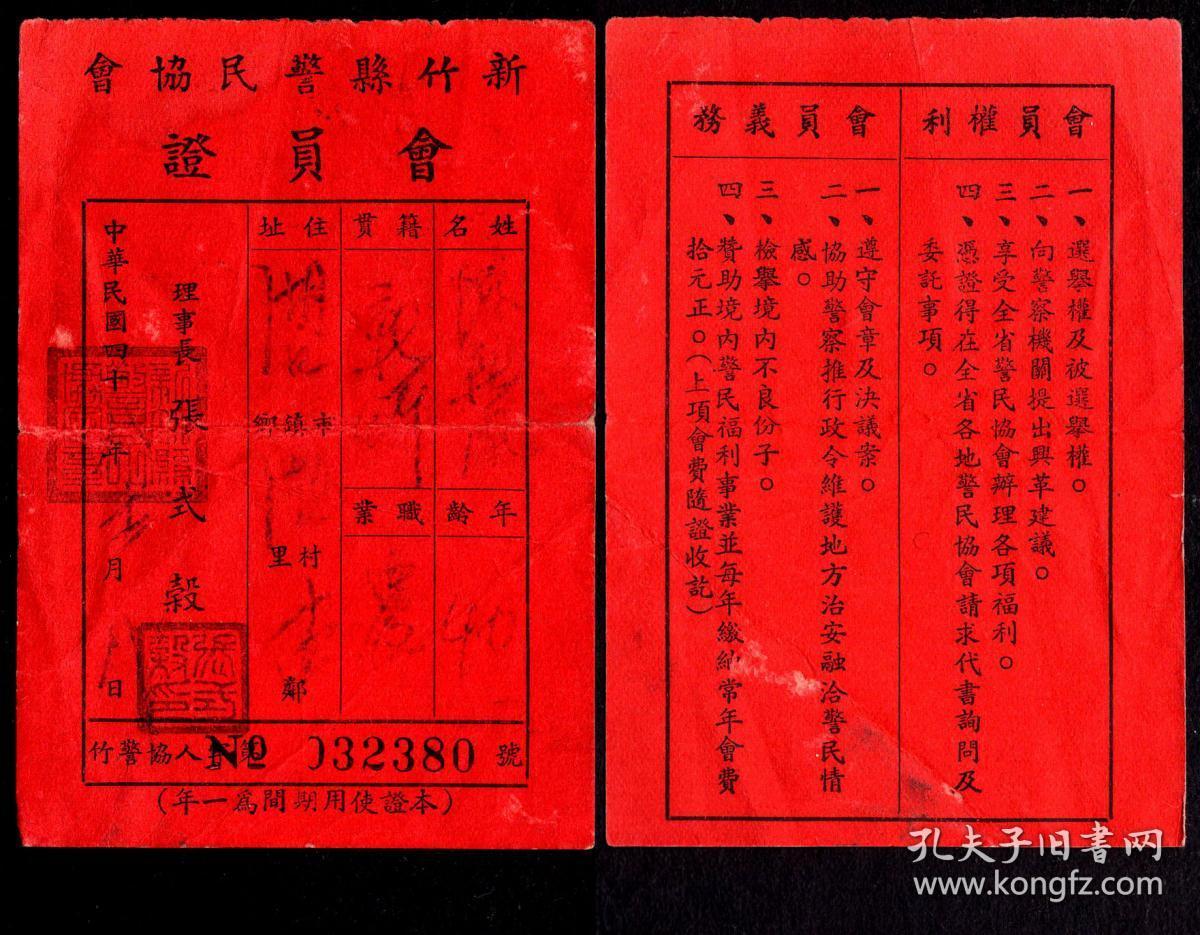 新竹縣警民協會
會員證
姓名
年齡
40
籍貫
新竹
職業
住址
市鎮鄉
村里
鄰
理事長 張式穀
中華民國四十年
月
日
竹警協人字第
№ 032380 號
(本證使用期間為一年)
會員權利
一、選舉權及被選舉權。
二、向警察機關提出興革建議。
三、享受全省警民協會辦理各項福利。
四、憑證得在全省各地警民協會請求代書詢問及
委託事項。
會員義務
一、遵守會章及決議案。
二、協助警察推行政令維護地方治安融洽警民情
感。
三、檢舉境內不良份子。
四、贊助境內警民福利事業並每年繳納常年會費
拾元正。(上項會費隨證收訖)
孔夫子旧书网
www.kongfz.com